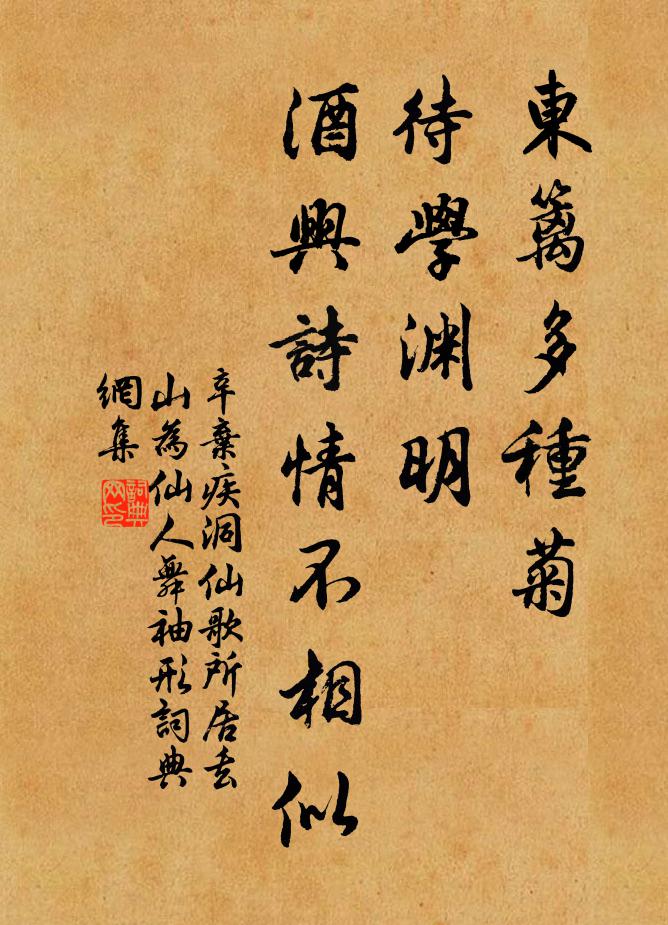 東籬多種菊
待學渊明
酒興詩情不相似
辛棄疾洞仙歌所居去
山為仙人舞袖形詞典
網集
詞典